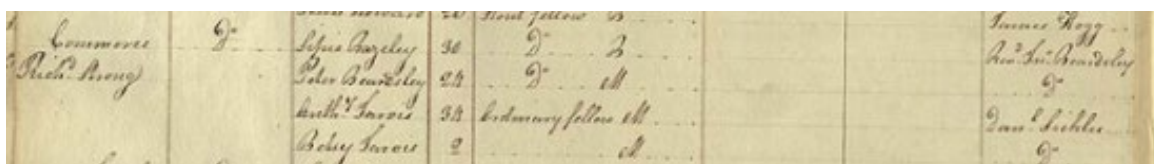 Stout fellow B James Hogg
Commerce Do Bazeley 30 Do Revd Jno Beardsley
Richd Strong Peter Beardsley 24 Do M Do
Anthy Jarvis 34 Ordinary fellow M Danl Sickles
Betsey Jarvis 9 M Do